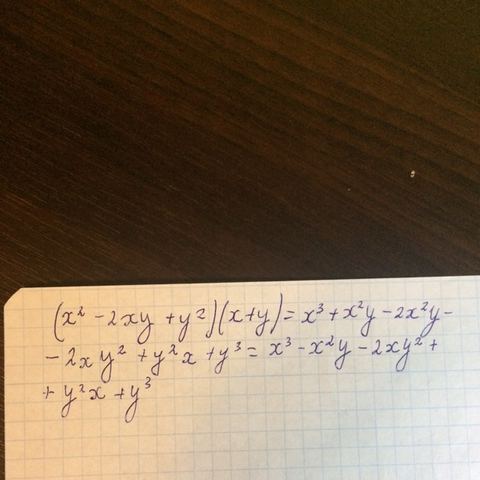 (x² - 2xy + y²)(x+y) = x³ + x²y - 2x²y -
- 2xy² + y²x + y³ = x³ - x²y - 2xy² +
+ y²x + y³